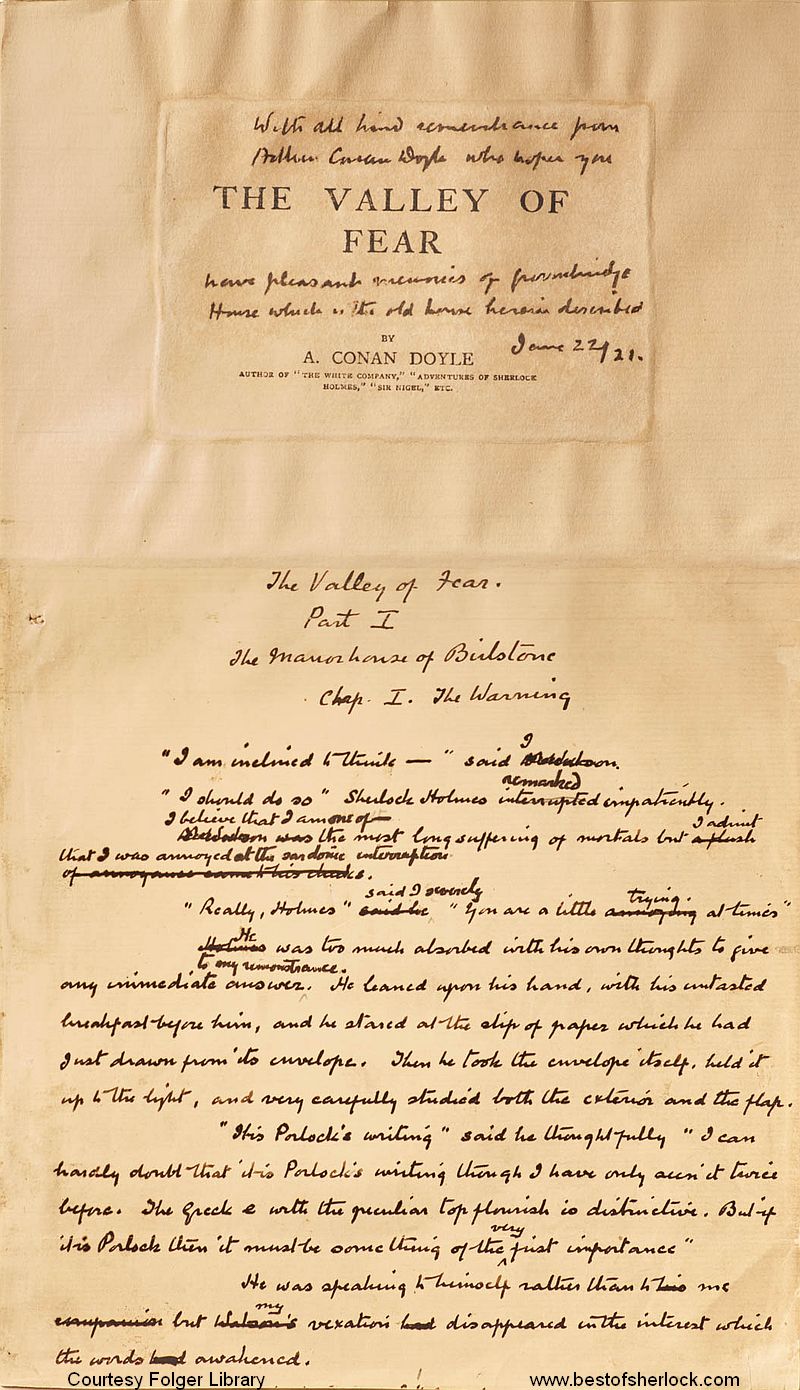 With all kind remembrance from
Arthur Conan Doyle who hopes you
THE VALLEY OF
FEAR
have pleasant memories of Groombridge
House which is the old house herein described
BY
June 22/21.
A. CONAN DOYLE
AUTHOR OF "THE WHITE COMPANY," "ADVENTURES OF SHERLOCK
HOLMES," "SIR NIGEL," ETC.
The Valley of Fear.
Part I
The Manor house of Birlstone
Chap. I. The Warning
I
"I am inclined to think — " said Dr Watson.
remarked
"I should do so" Sherlock Holmes interrupted impatiently.
I believe that I am one of
Dr Watson was the most long suffering of mortals but a flush
I admit
that I was annoyed at the sardonic interruption
of annoyance came to his cheeks.
said I severely
trying.
"Really, Holmes" said he "You are a little annoying at times"
He
Holmes was too much absorbed with his own thoughts to give
to my remonstrance.
any immediate answer. He leaned upon his hand, with his untasted
breakfast before him, and he stared at the slip of paper which he had
just drawn from its envelope. Then he took the envelope itself, held it
up to the light, and very carefully studied both the exterior and the flap.
"It is Porlock's writing" said he thoughtfully "I can
hardly doubt that it is Porlock's writing though I have only seen it twice
before. The Greek e with the peculiar top flourish is distinctive. But if
very
it is Porlock then it must be something of the first importance"
He was speaking to himself rather than to his me
my
companion but Watson's vexation had disappeared in the interest which
the words had awakened.
Courtesy Folger Library
www.bestofsherlock.com